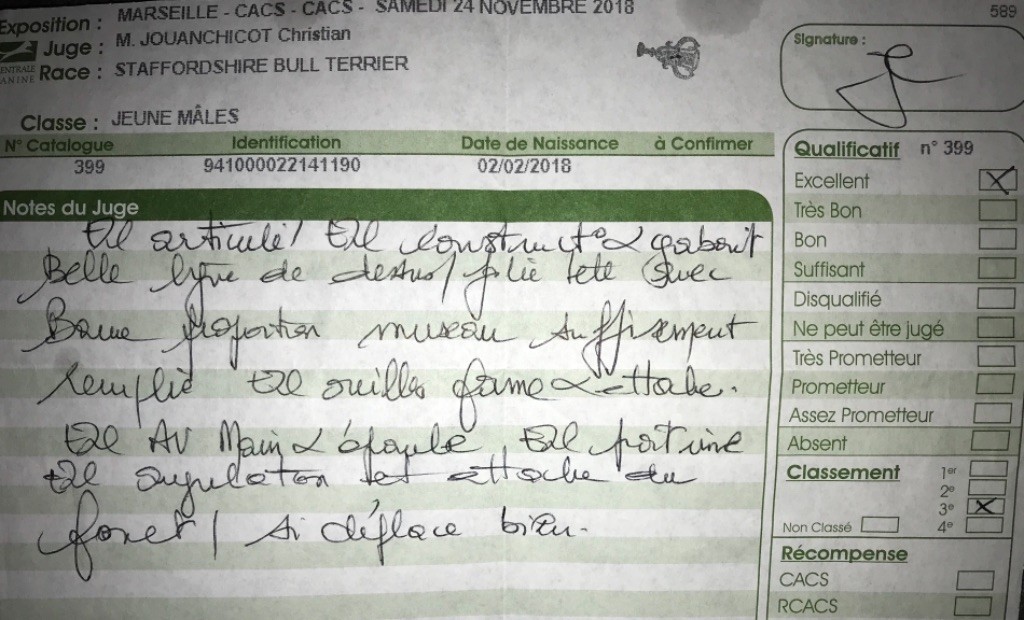 Exposition : MARSEILLE - CACS - CACS - SAMEDI 24 NOVEMBRE 2018
589
Juge : M. JOUANCHICOT Christian
CENTRALE
CANINE
Race : STAFFORDSHIRE BULL TERRIER
Signature :
Classe : JEUNE MÂLES
N° Catalogue Identification Date de Naissance à Confirmer
399 941000022141190 02/02/2018
Notes du Juge
articulé / & gabarit
Belle de dessus / jolie tête avec
Bonne proportion museau suffisement
remplie oreilles & attache.
AV Main & épaule poitrine
angulation attache du
fouet / si déplace bien.
Qualificatif n° 399
Excellent
Très Bon
Bon
Suffisant
Disqualifié
Ne peut être jugé
Très Prometteur
Prometteur
Assez Prometteur
Absent
Classement 1er
2e
3e
Non Classé 4e
Récompense
CACS
RCACS